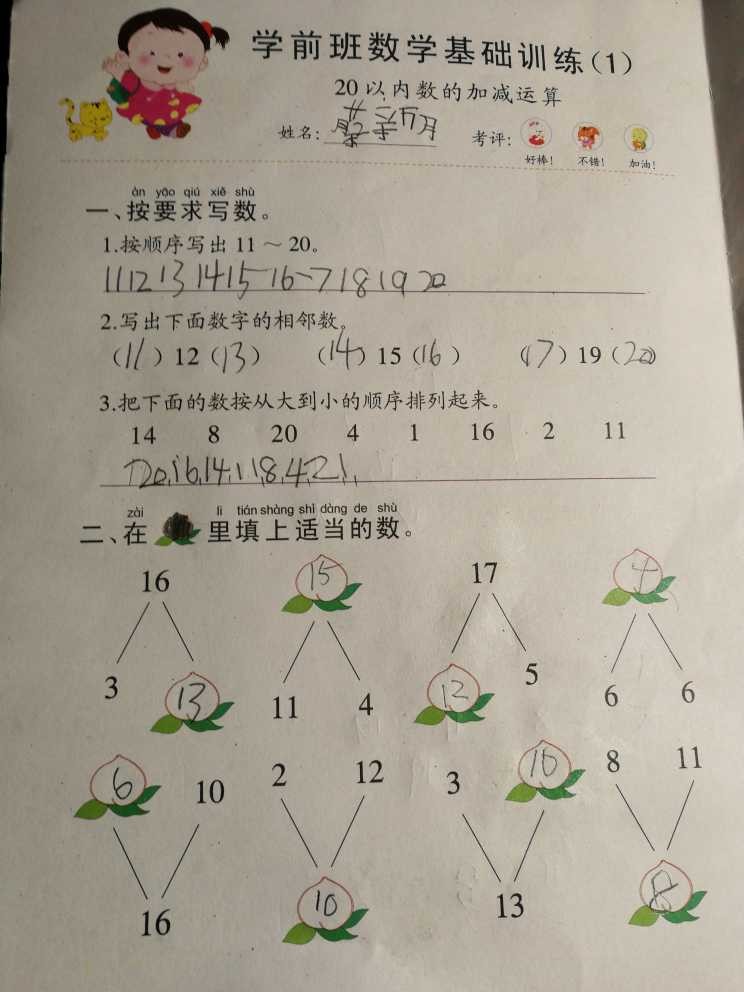 学前班数学基础训练(1)
20以内数的加减运算
姓名: 考评: 好棒! 不错! 加油!
àn yāo qiú xiě shù
一、按要求写数。
1.按顺序写出 11～20。
11 12 13 14 15 16 7 18 19 20
2.写出下面数字的相邻数。
(11) 12 (13) (14) 15 (16) (17) 19 (20)
3.把下面的数按从大到小的顺序排列起来。
14 8 20 4 1 16 2 11
20,16,14,11,8,4,2,1,
zài lǐ tián shàng shì dàng de shù
二、在 里填上适当的数。
16 15 17 4
3 13 11 4 12 5 6 6
6 10 2 12 3 10 8 11
16 10 13 8